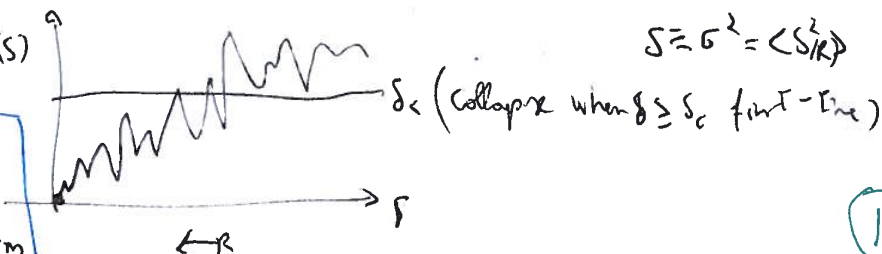 (S)
S ≡ σ² = <δ²(R)>
δc (Collapse when δ ≥ δc first-time)
S
← R
m